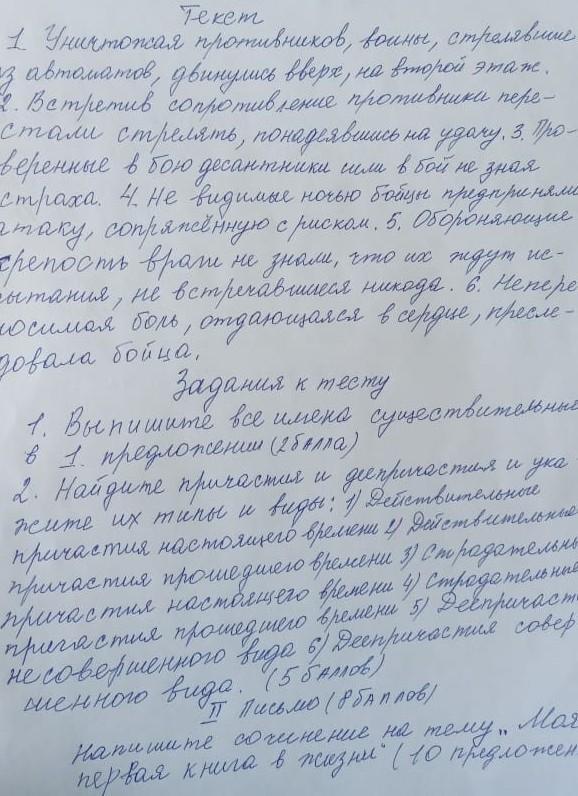 Текст
1. Уничтожая противников, воины, стрелявшие
из автоматов, двинулись вверх, на второй этаж.
2. Встретив сопротивление противники пере-
стали стрелять, понадеявшись на удачу. 3. Про-
веренные в бою десантники шли в бой не зная
страха. 4. Не видимые ночью бойцы предприняли
атаку, сопряжённую с риском. 5. Обороняющие
крепость враги не знали, что их ждут ис-
пытания, не встречавшиеся никода. 6. Непере
носимая боль, отдающаяся в сердце, пресле-
довала бойца.
Задания к тесту
1. Выпишите все имена существительные
в 1. предложении (2 балла)
2. Найдите причастия и деепричастия и ука-
жите их типы и виды: 1) Действительные
причастия настоящего времени 2) Действительные
причастия прошедшего времени 3) Страдательны
причастия настоящего времени 4) Страдательные
пригастия прошедшего времени 5) Деепричаст
несовершенного вида 6) Деепричастия совер
шенного вида. (5 баллов)
II Письмо (8 баллов)
Напишите сочинение на тему „Моя
первая книга в жизни" (10 предложен